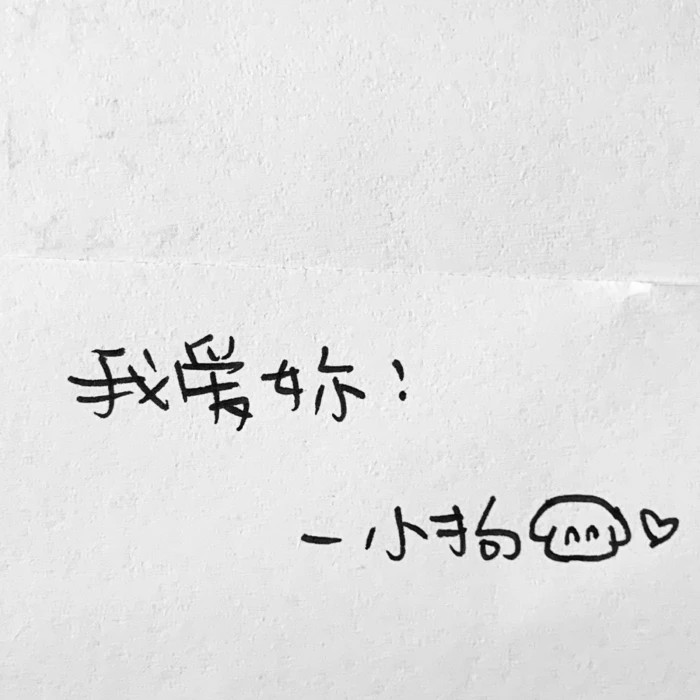 我爱妳!
一小狗♡